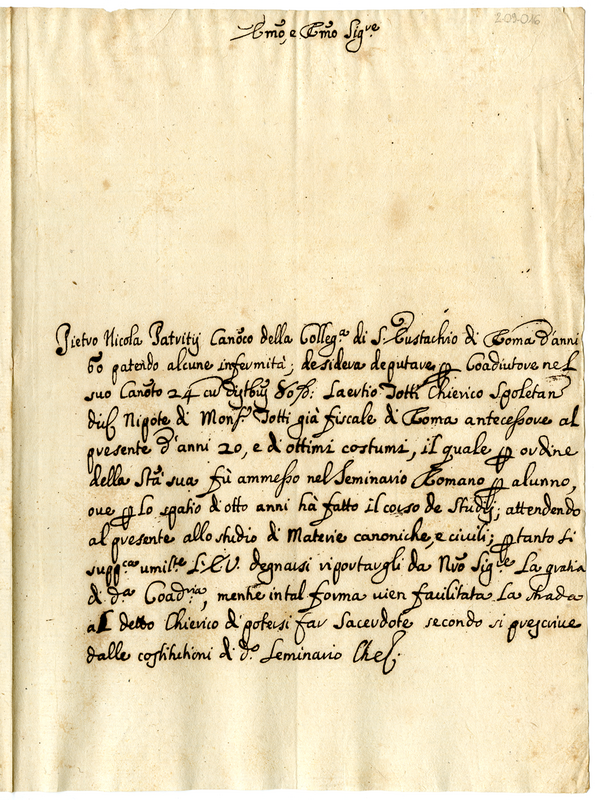 202016
Emo, e Rmo Sigre
Pietro Nicola Patritij Canoco della Collega di S. Eustachio di Roma d'anni
60 patendo alcune infermità; desidera deputare p Coadiutore nel
suo Canoto 24 cu Laertio Totti Chierico Spoletan
Nipote di Monsr Totti già fiscale di Roma antecessore al
presente d'anni 20, e di ottimi costumi, il quale p ordine
della Stà sua fù ammesso nel Seminario Romano p alunno,
oue p lo spatio d'otto anni hà fatto il corso de Studij; attendendo
al presente allo studio di Materie canoniche, e ciuili; ptanto si
suppca umilte l'E.V. degnarsi riportargli da Nro Sigre La gratia
di da Coadria, mentre in tal forma uien facilitata La strada
al detto Chierico di potersi far Sacerdote secondo si prescriue
dalle costitutioni di do Seminario Che